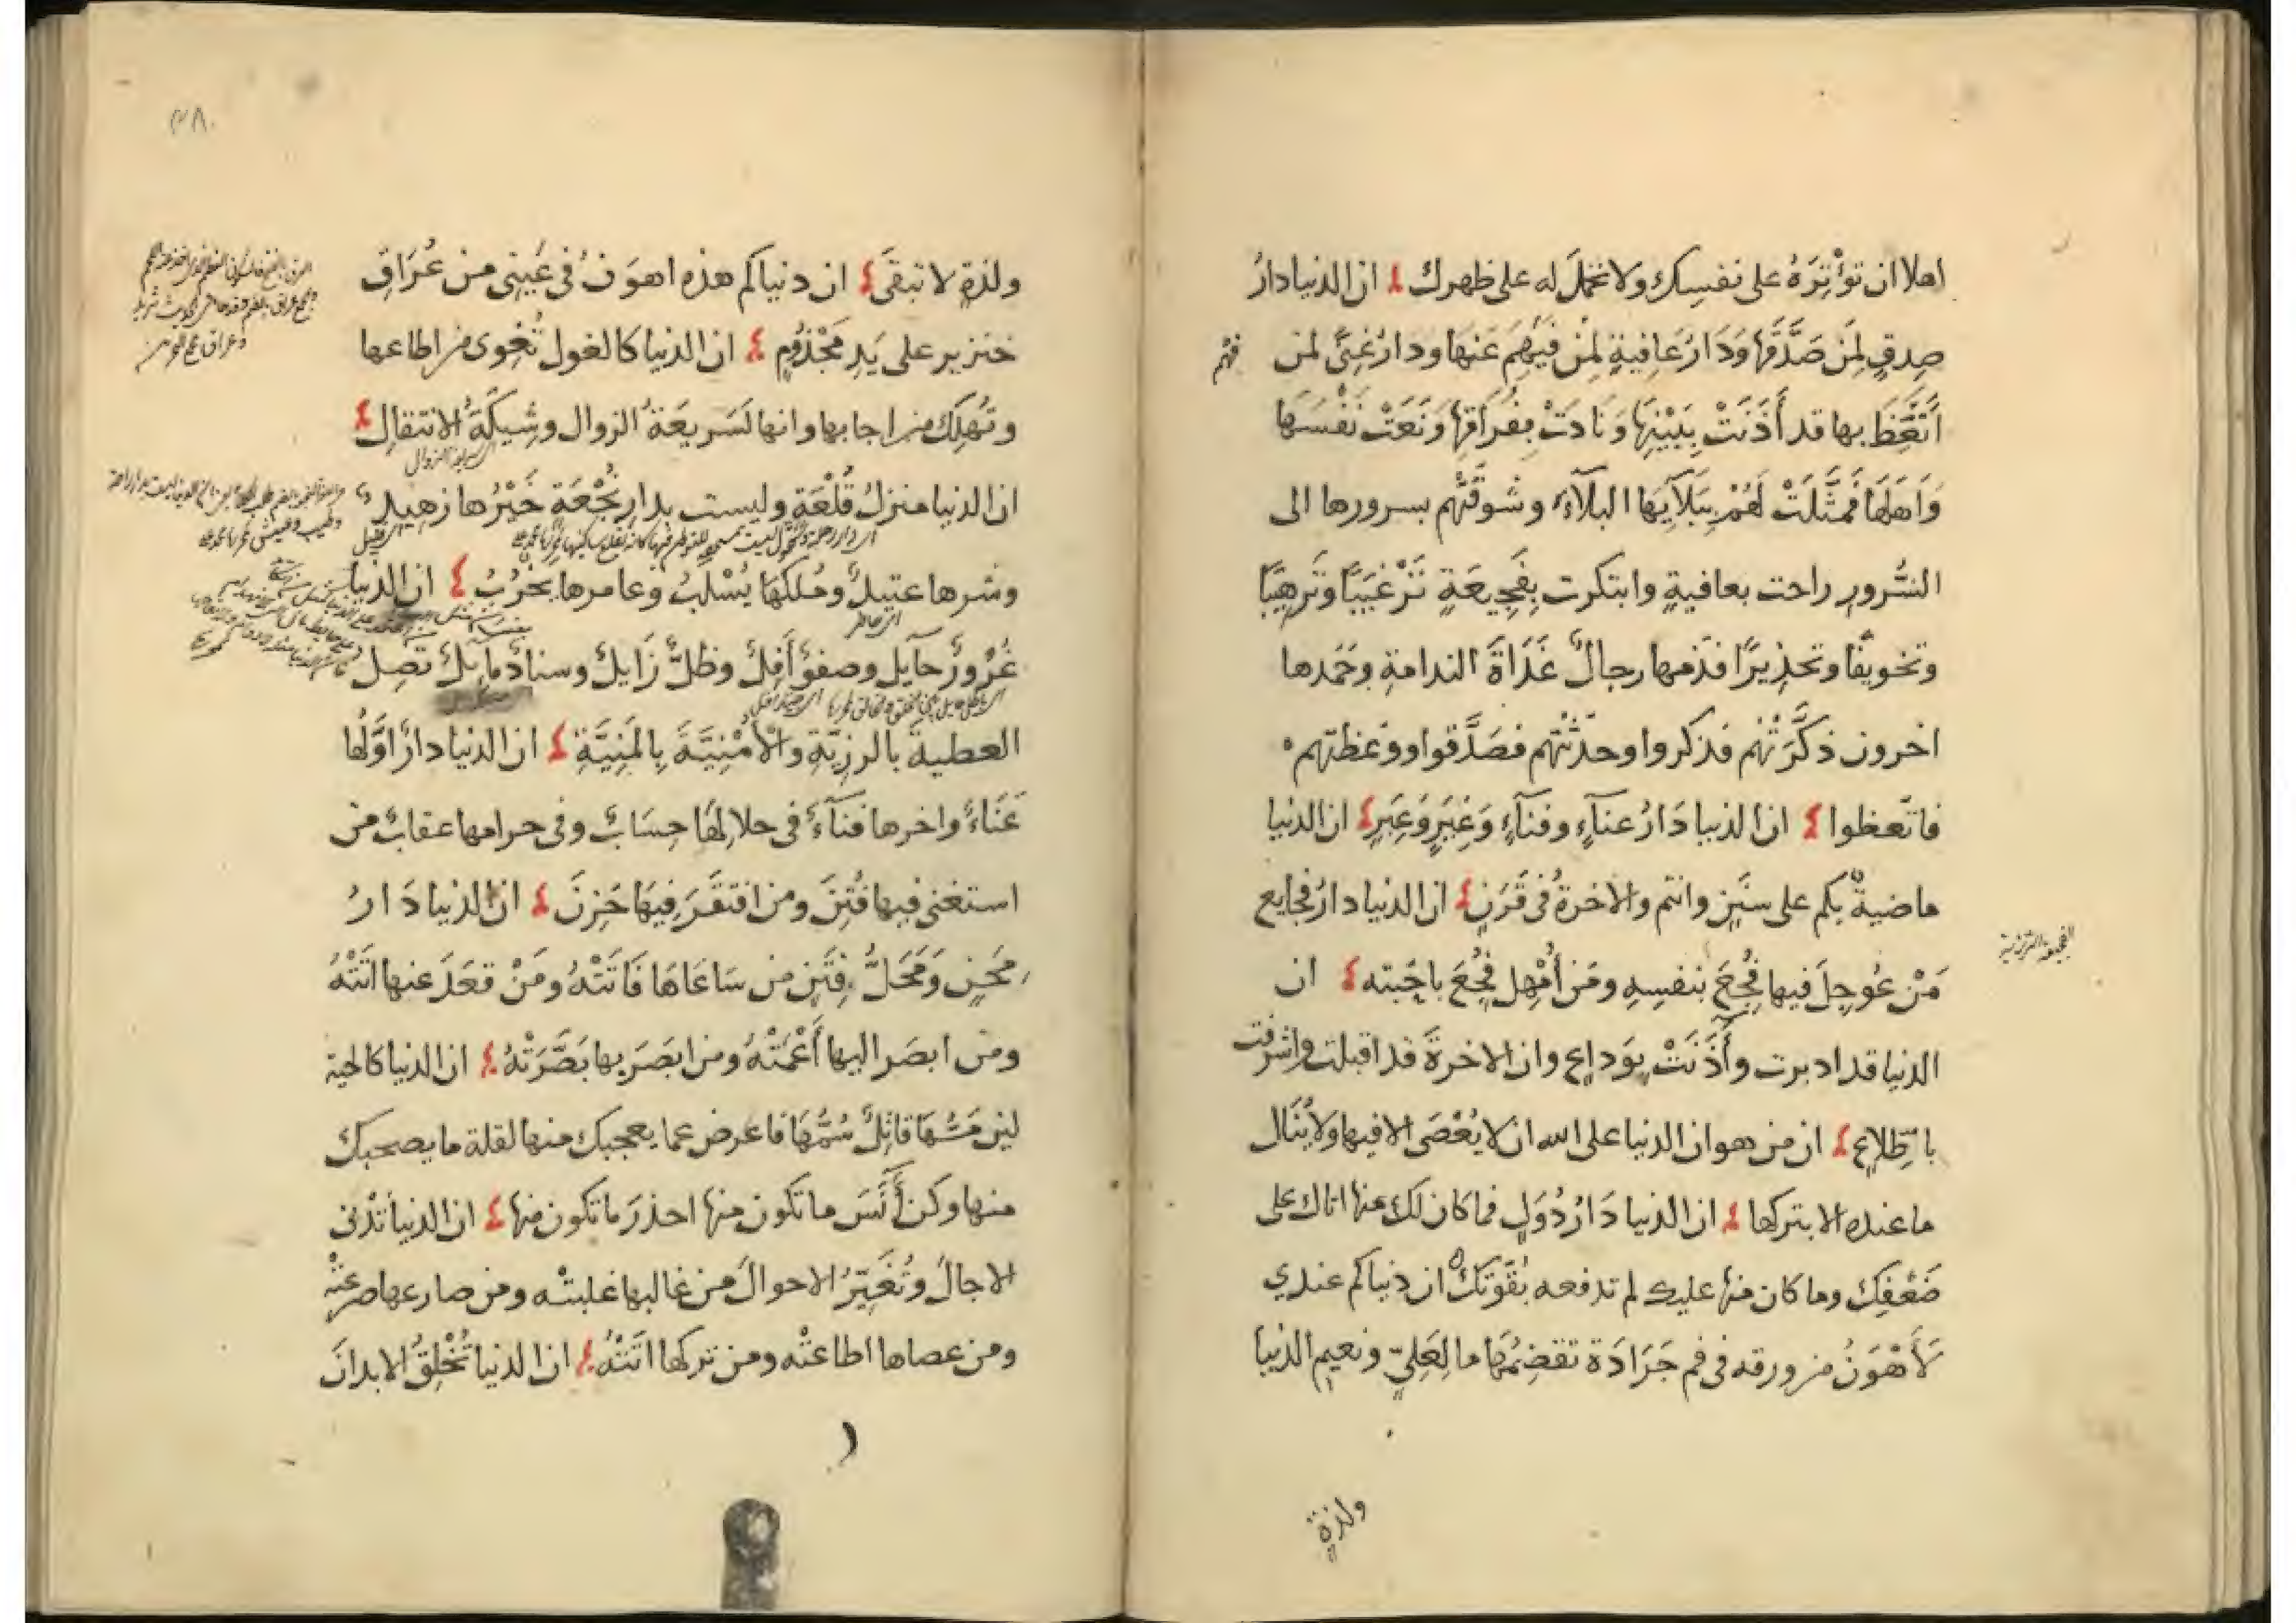 اهلا ان تؤثره على نفسك ولا تحمل له على ظهرك ان الدنيا دار
صدق لمن صدقها ودار عافية لمن فهم عنها ودار غنى لمن
فهم
اتعظ بها قد أذنت ببينها ونادت بفراقها ونعت نفسها
واهلها فمثلت لهم ببلآيها البلآء وشوقتهم بسرورها الى
السرور راحت بعافية وابتكرت بفجيعة ترغيبا وترهيبا
وتخويفا وتحذيرا فذمها رجال غداة الندامة وحمدها
اخرون ذكرتهم فذكروا وحدثتهم فصدقوا ووعظتهم
فاتعظوا ان الدنيا دار عنآء وفنآء وغير وعبر ان الدنيا
ماضية بكم على سنن وانتم والاخرة فى قرن ان الدنيا دار فجايع
من عوجل فيها فجع بنفسه ومن أمهل فجع باحبته ان
الفجيعة الرزية
الدنيا قد ادبرت وأذنت بوداع وان الاخرة قد اقبلت واشرفت
باطلاع ان من هوان الدنيا على الله ان لا يعصى الا فيها ولا ينال
ما عنده الا بتركها ان الدنيا دار دول فما كان لك منها اتاك على
ضعفك وما كان منها عليك لم تدفعه بقوتك ان دنياكم عندي
لأهون من ورقه فى فم جرادة تقضمها ما لعلي ونعيم الدنيا
ولذة
٣٨
ولذة لا تبقى ان دنياكم هذه اهون فى عينى من عراق
خنزير على يد مجذوم ان الدنيا كالغول تغوى من اطاعها
وتهلك من اجابها وانها لسريعة الزوال وشيكة الانتقال
ان الدنيا منزل قلعة وليست بدار نجعة خيرها زهيد
وشرها عتيد وملكها يسلب وعامرها يخرب ان الدنيا
اى حاضر
غرور حآيل وضوء آفل وظل زايل وسناد مايل تصل
العطية بالرزية والأمنية بالمنية ان الدنيا دار اولها
عناء واخرها فنآء فى حلالها حساب وفى حرامها عقاب من
استغنى فيها فتن ومن افتقر فيها حزن ان الدنيا دار
محن ومحل فتن من ساعاها فاتته ومن قعد عنها اتته
ومن ابصر اليها أعمته ومن ابصر بها بصرته ان الدنيا كالحية
لين مسها قاتل سمها فاعرض عما يعجبك منها لقلة ما يصحبك
منها وكن أنس ما تكون منها احذر ما تكون منها ان الدنيا تدنى
الاجال وتغير الاحوال من غالبها غلبته ومن صارعها صرعته
ومن عصاها اطاعته ومن تركها اتته ان الدنيا تخلق الابدان